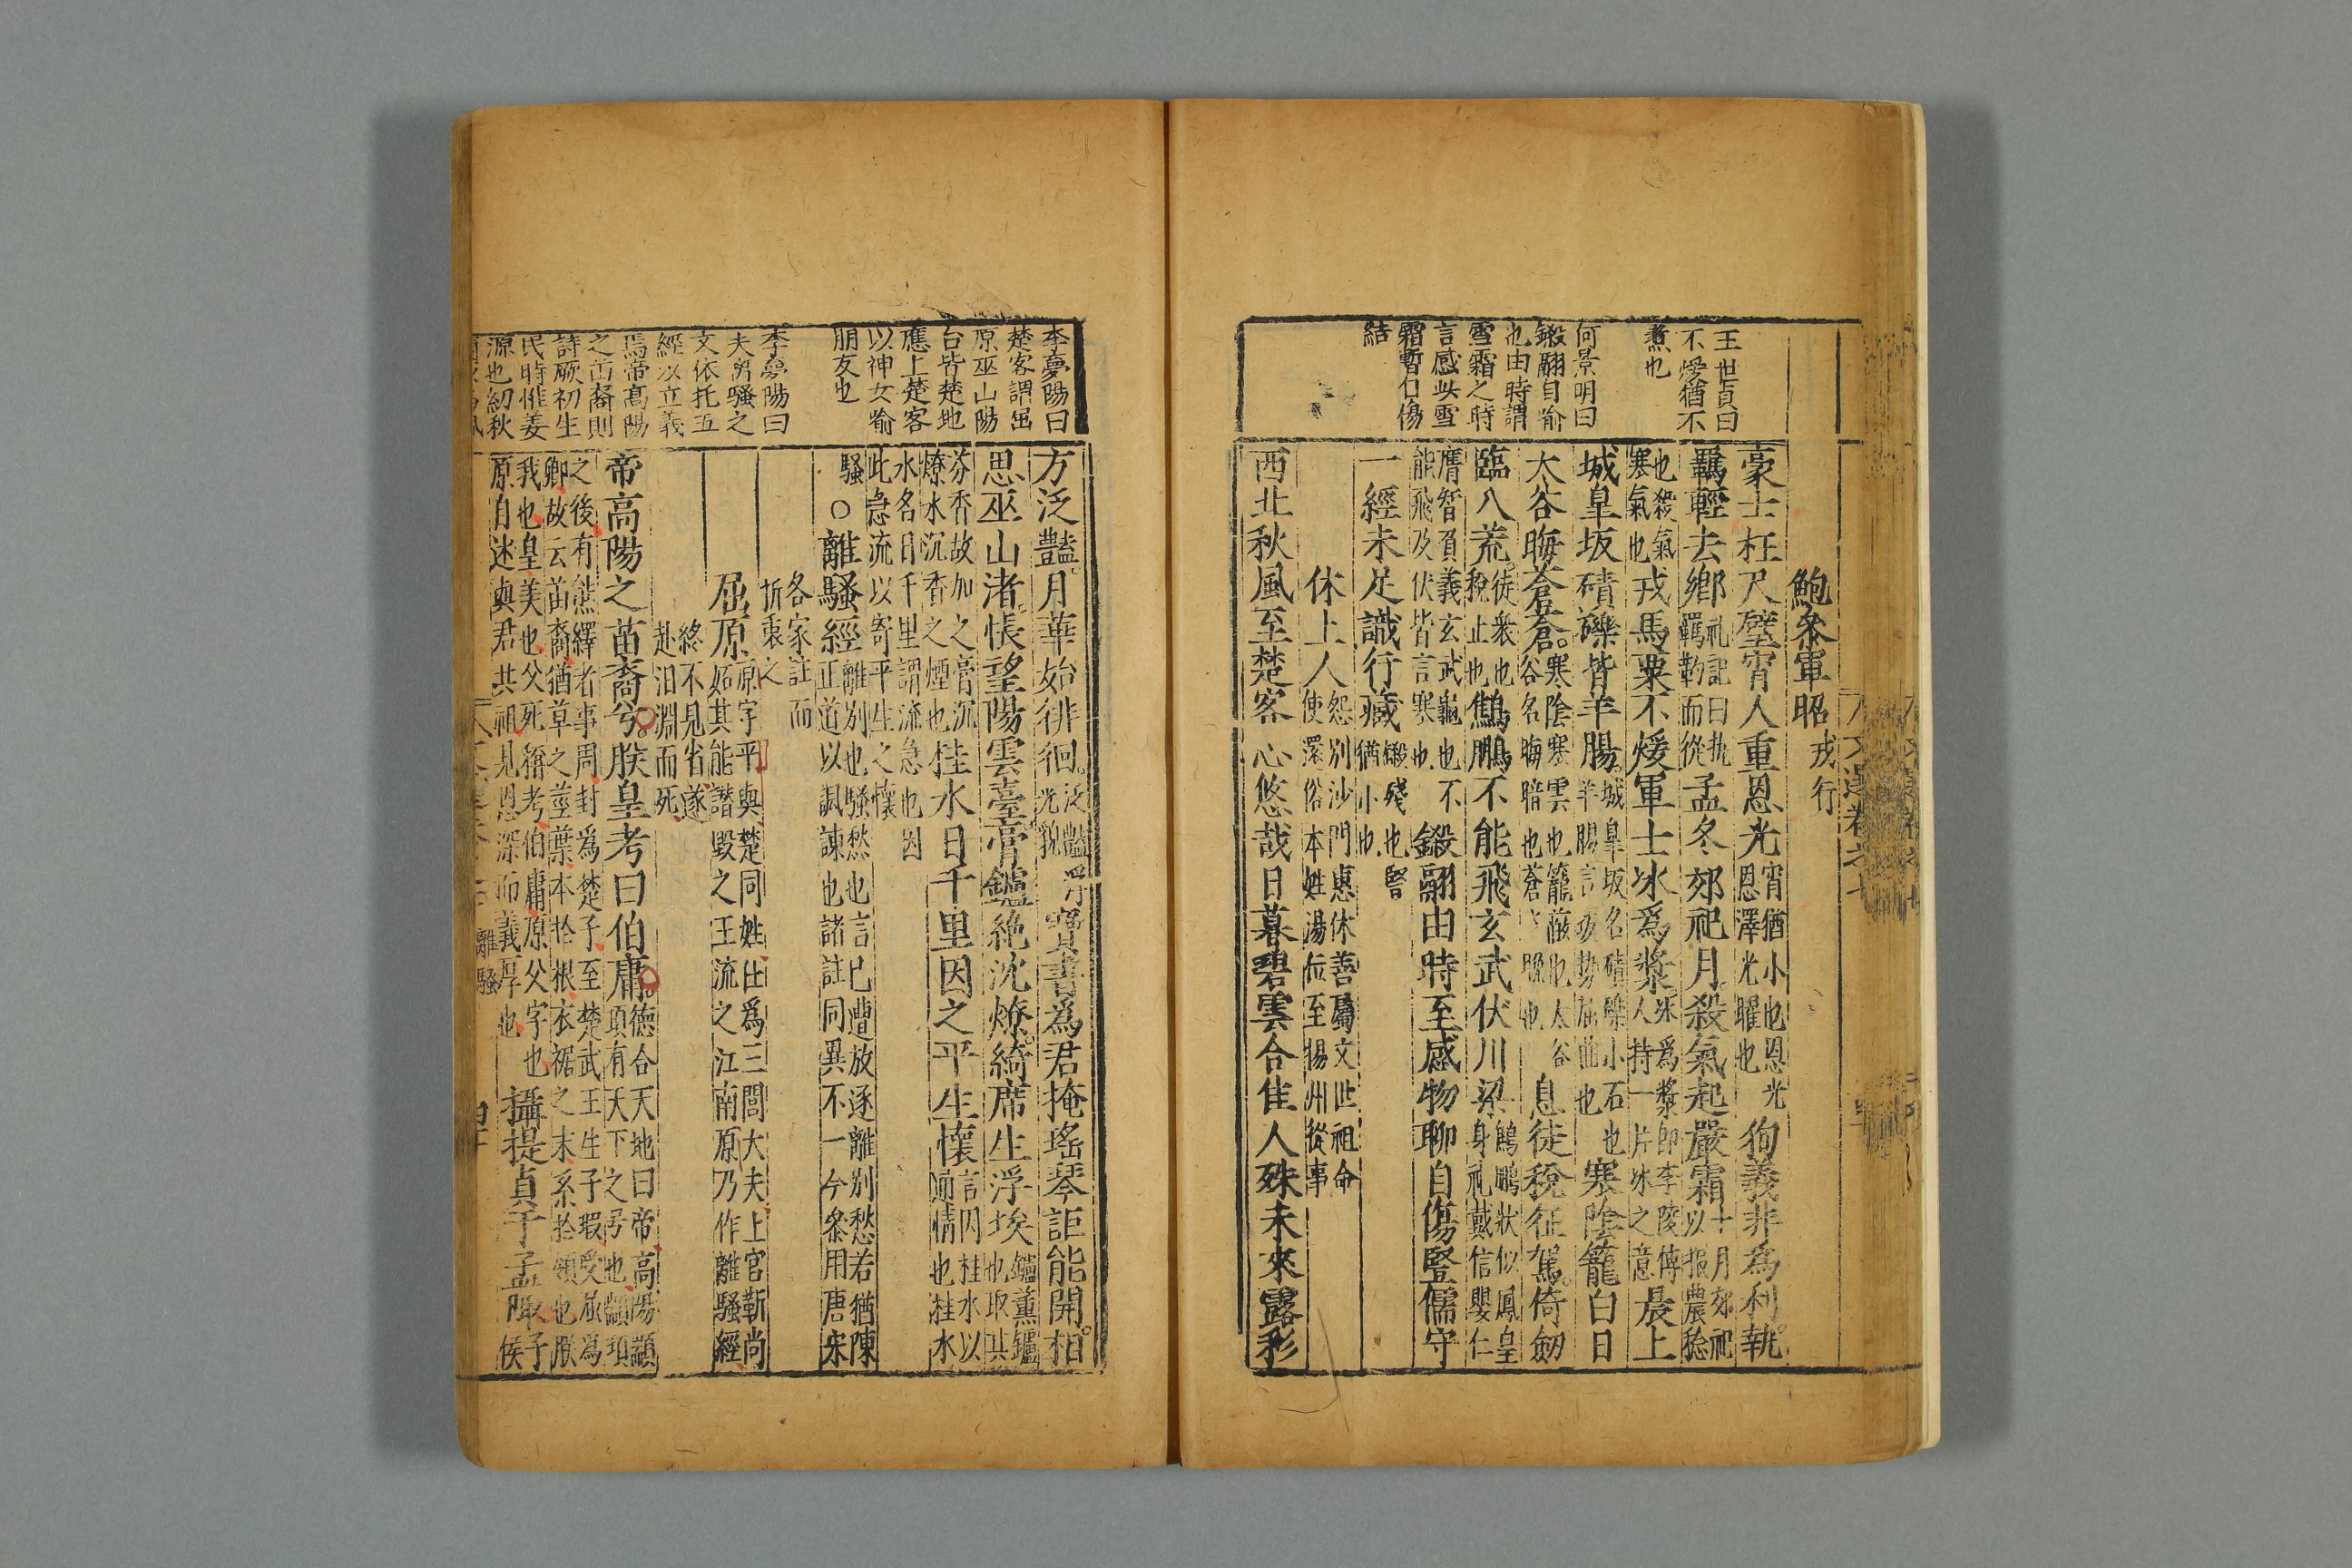 王世貞曰
不煖猶不
煮也
何景明曰
鍛翮自喻
也由時謂
雪霜之時
言感此雪
霜暫自傷
結
鮑參軍昭戎行
豪士枉尺璧宵人重恩光宵猶小也恩光
恩澤光曜也狥義非為利執
羈輕去鄉禮記曰執
羈靮而從孟冬郊祀月殺氣起嚴霜十月郊祀
以報農穏
也殺氣
寒氣也戎馬粟不煖軍士冰爲漿氷爲漿即李陵傳
人持一片冰之意晨上
城皐坂磧礫皆羊腸城皐坂名磧礫小石也
羊腸言坂勢屈曲也寒陰籠白日
太谷晦蒼蒼寒陰寒雲也籠蔽也太谷
谷名晦暗也蒼蒼晚也息徒稅征駕倚劒
臨八荒徒衆也
稅止也鷦鵬不能飛玄武伏川梁鷦鵬狀似鳳皇
身礼戴信嬰仁
膺智負義玄武龜也不
能飛及伏皆言寒也鍛翮由時至感物聊自傷豎儒守
一經未足識行藏鍛殘也豎
猶小也
休上人怨別沙門惠休善屬文世祖命
使還俗本姓湯位至揚州從事
西北秋風至楚客心悠哉日暮碧雲合佳人殊未來露彩
李夢陽曰
楚客謂屈
原巫山陽
台皆楚地
應上楚客
以神女喻
朋友也
李夢陽曰
夫離騷之
文依托五
經以立義
焉帝高陽
之苗裔則
詩厥初生
民時惟姜
源也紉秋
方泛豔月華始徘徊泛豔浮
光貌寶書爲君掩瑤琴詎能開相
思巫山渚悵望陽雲臺膏鑪絶沈燎綺席生浮埃鑪薰鑪
也取其
芬香故加之膏沉
燎水沉香之煙也桂水日千里因之平生懷言因桂水以
通情也桂水
水名日千里謂流急也因
此急流以寄平生之懷
騷○離騷經離別也騷愁也言已遭放逐離別愁若猶陳
正道以諷諫也諸註同異不一今叅用唐宋
各家註而
折衷之
屈原原字平與楚同姓仕爲三閭大夫上官靳尚
妬其能譖毀之王流之江南原乃作離騷經
終不見省遂
赴汨淵而死
帝高陽之苗裔兮朕皇考曰伯庸德合天地曰帝高陽顓
項有天下之号也顓項
之後有熊繹者事周封爲楚子至楚武王生子瑕受屈爲
卿故云苗裔猶草之莖葉本於根衣裾之末系於領也朕
我也皇美也父死稱考伯庸原父字也
原自述與君共祖見恩深而義厚也攝提貞于孟陬
離騷